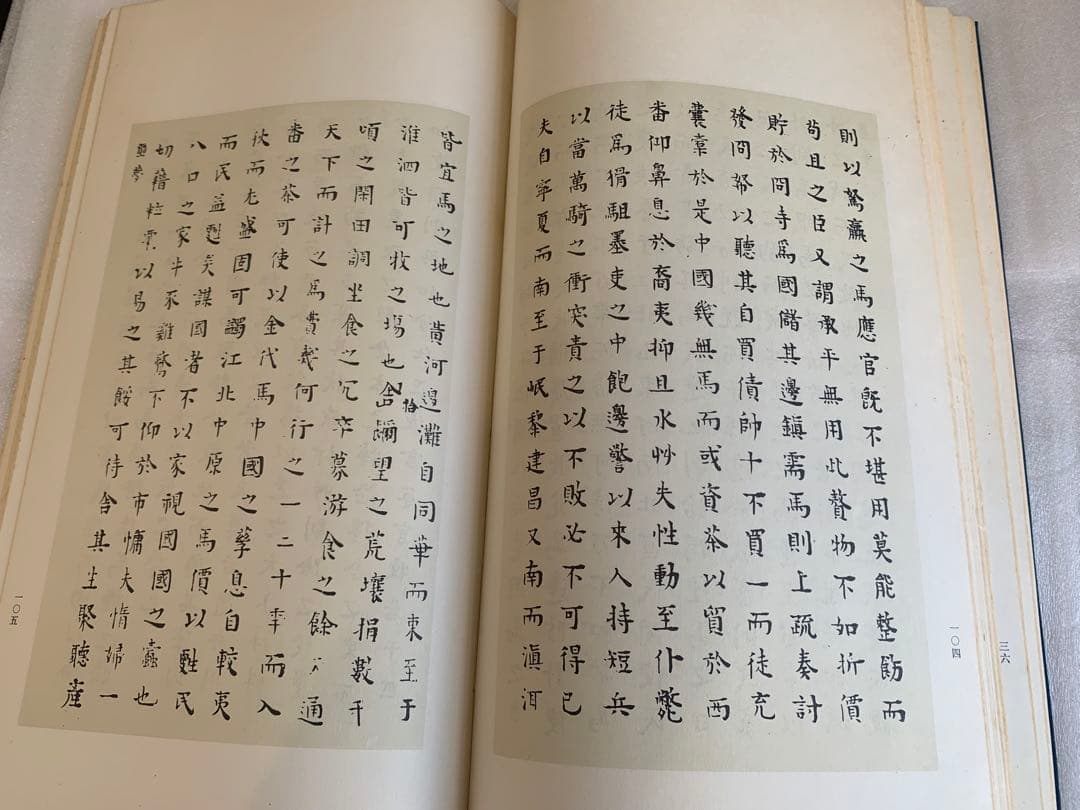 則以駑羸之馬應官既不堪用莫能整飭而
苟且之臣又謂承平無用此贅物不如折價
貯於冏寺爲國儲其邊鎮需馬則上疏奏討
發冏帑以聽其自買債帥十不買一而徒充
囊橐於是中國幾無馬而或資茶以貿於西
番仰鼻息於裔夷抑且水艸失性動至仆斃
徒爲猾駔墨吏之中飽邊警以來人持短兵
以當萬騎之衝突責之以不敗必不可得已
夫自寧夏而南至于岷黎建昌又南而滇洱
三六
一〇四
皆宜馬之地也黃河邊灘自同華而東至于
淮泗皆可牧之場也彌望之荒壤捐數千
拾
頃之閑田調坐食之冗卒募游食之餘通
天下而計之爲費幾何行之一二十年而入
番之茶可使以金代馬中國之孳息自較夷
狄而尤盛固可蠲江北中原之馬價以甦民
而民益矣謀國者不以家視國國之蠹也
八口之家牛豕雞鶩下仰於市慵夫惰婦一
切藉粒粟以易之其餒可待舍其坐聚聽產
噩夢
一〇五